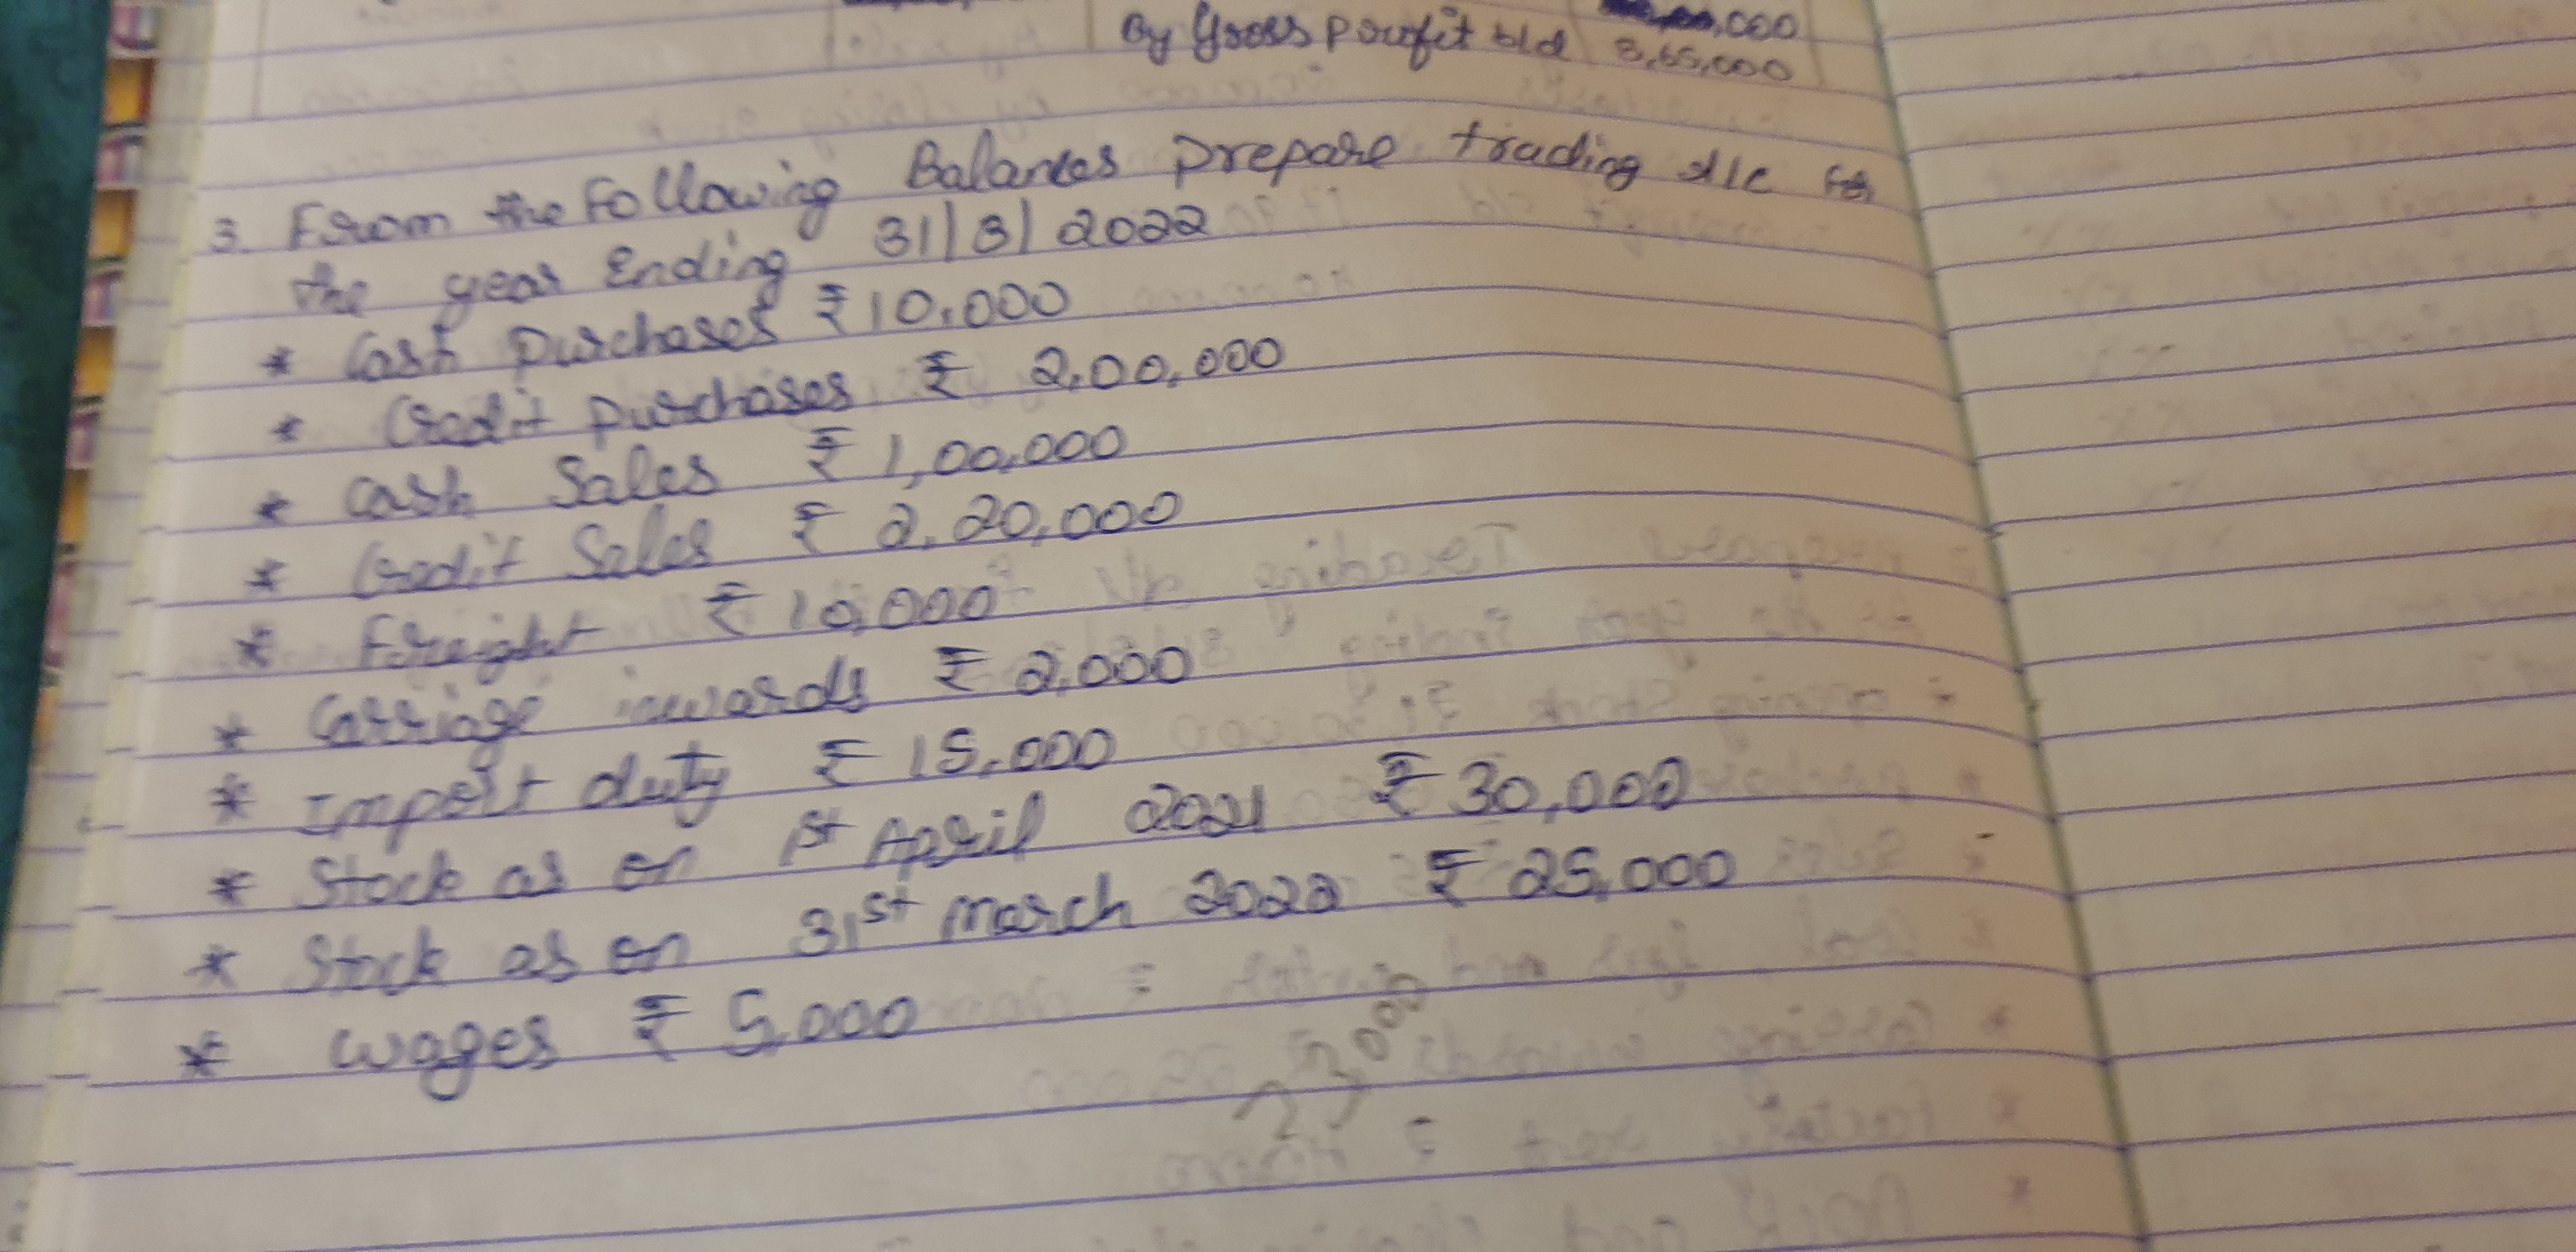 By Gross profit b/d 3,65,000
3. From the Following Balances prepare trading A/c for
the year Ending 31/3/2022
* Cash purchases ₹ 10,000
* Credit purchases ₹ 2,00,000
* Cash Sales ₹ 1,00,000
* Credit Sales ₹ 2,20,000
* Freight ₹ 10,000
* Carriage inwards ₹ 2,000
* Import duty ₹ 15,000
* Stock as on 1st April 2021 ₹ 30,000
* Stock as on 31st March 2022 ₹ 25,000
* wages ₹ 5,000